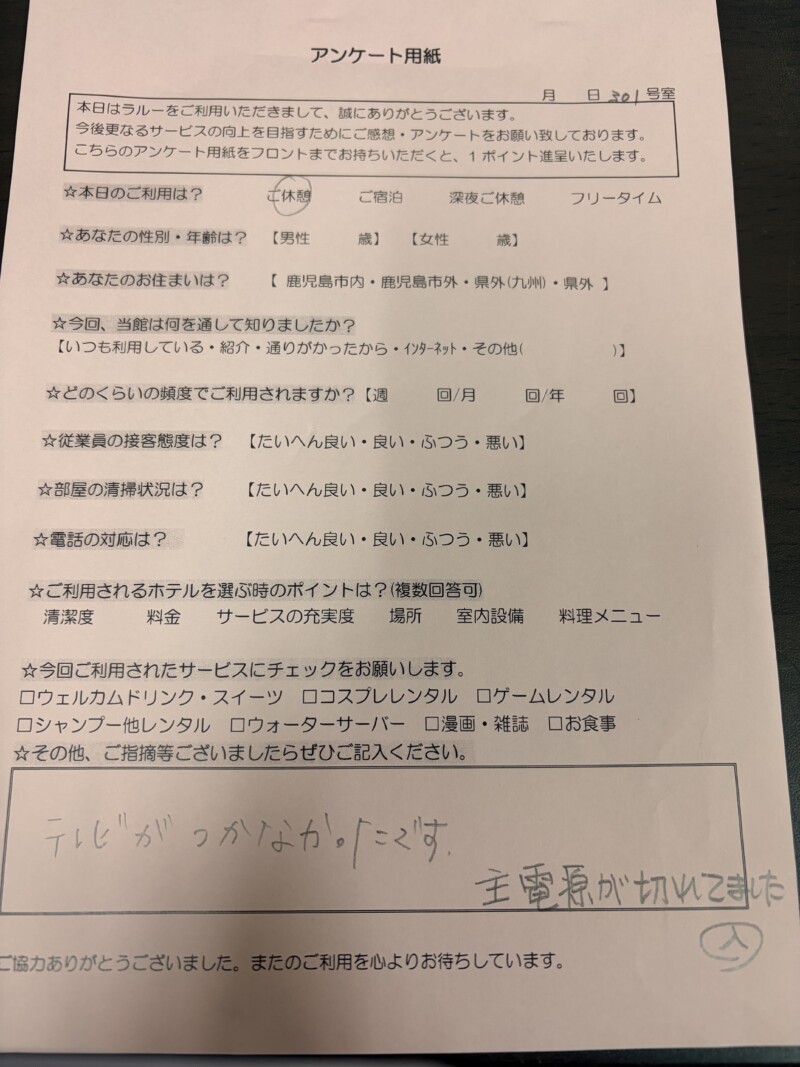 アンケート用紙
月 日 301 号室
本日はラルーをご利用いただきまして、誠にありがとうございます。
今後更なるサービスの向上を目指すためにご感想・アンケートをお願い致しております。
こちらのアンケート用紙をフロントまでお持ちいただくと、1ポイント進呈いたします。
☆本日のご利用は? ご休憩 ご宿泊 深夜ご休憩 フリータイム
☆あなたの性別・年齢は? 【男性 歳】 【女性 歳】
☆あなたのお住まいは? 【 鹿児島市内・鹿児島市外・県外(九州)・県外 】
☆今回、当館は何を通して知りましたか?
【いつも利用している・紹介・通りがかったから・インターネット・その他( )】
☆どのくらいの頻度でご利用されますか?【週 回/月 回/年 回】
☆従業員の接客態度は? 【たいへん良い・良い・ふつう・悪い】
☆部屋の清掃状況は? 【たいへん良い・良い・ふつう・悪い】
☆電話の対応は? 【たいへん良い・良い・ふつう・悪い】
☆ご利用されるホテルを選ぶ時のポイントは?(複数回答可)
清潔度 料金 サービスの充実度 場所 室内設備 料理メニュー
☆今回ご利用されたサービスにチェックをお願いします。
□ウェルカムドリンク・スイーツ □コスプレレンタル □ゲームレンタル
□シャンプー他レンタル □ウォーターサーバー □漫画・雑誌 □お食事
☆その他、ご指摘等ございましたらぜひご記入ください。
テレビがつかなかったです.
主電源が切れてました
入
ご協力ありがとうございました。またのご利用を心よりお待ちしています。